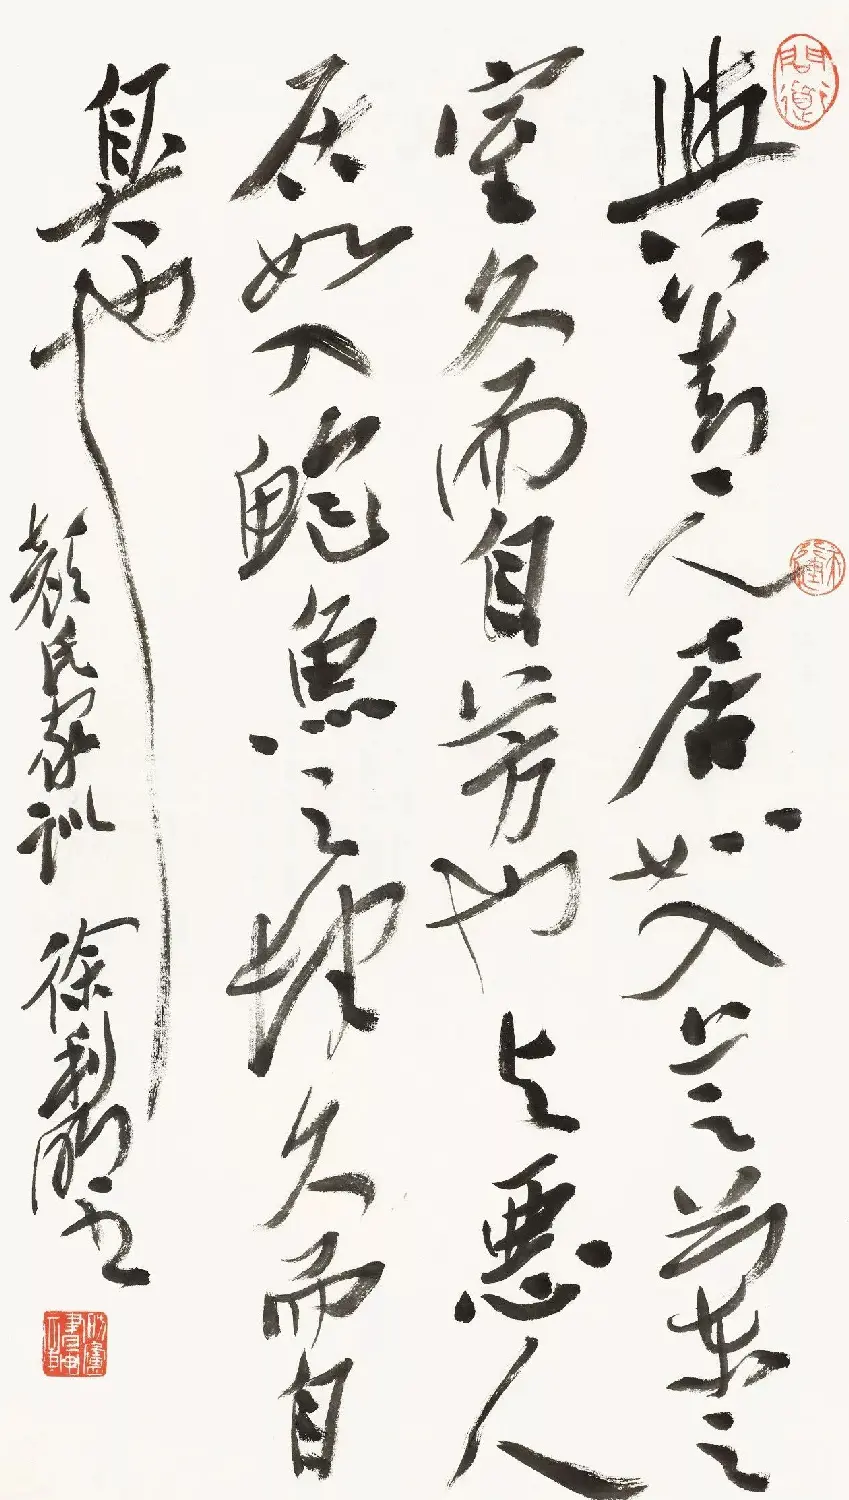 問道
與善人居如入芝蘭之
室久而自芳也与悪人
居如入鮑魚之肆久而自
臭也
顏氏家訓 徐利明書